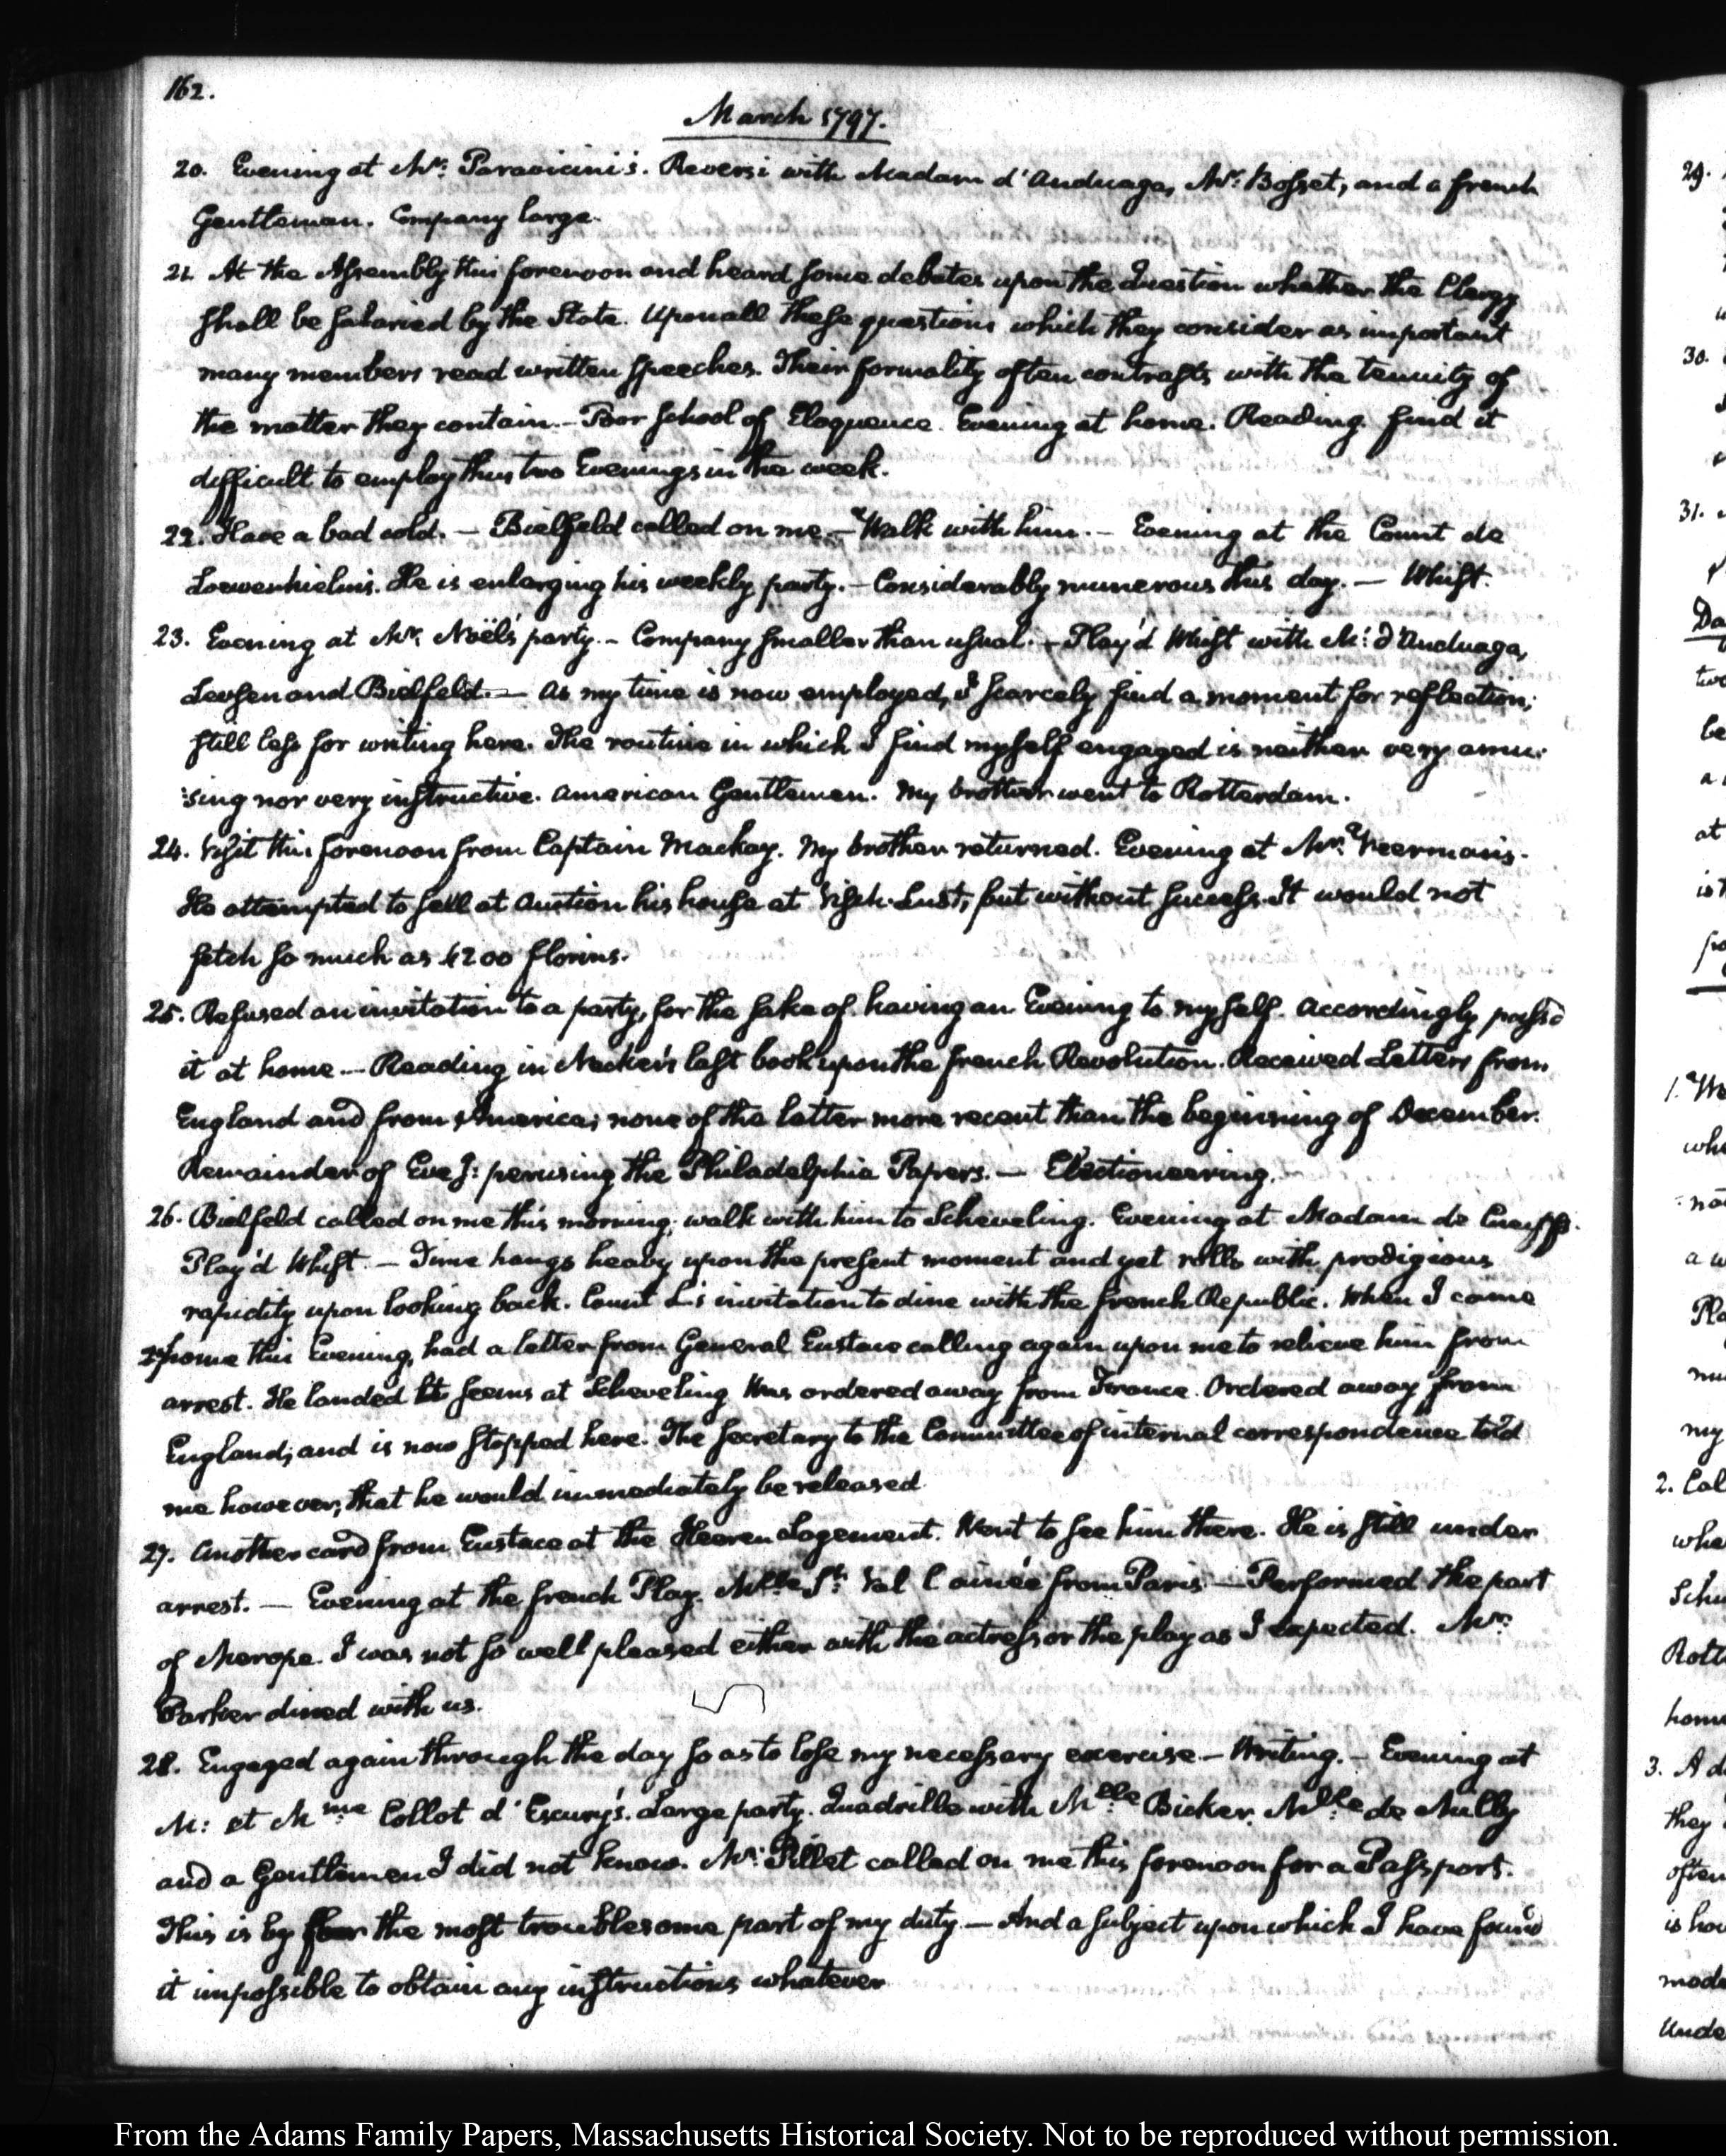 162.
March 1797.
20. Evening at Mr: Paravicini's. Reversi with Madam d'Anduaga, Mr: Bosset, and a french
Gentleman. Company large.
21. At the Assembly this forenoon and heard some debates upon the Question whether the Clergy
shall be salaried by the State. Upon all these questions which they consider as important
many members read written speeches. Their formality often contrasts with the tenuity of
the matter they contain.— Poor school of Eloquence. Evening at home. Reading. find it
difficult to employ thus two Evenings in the week.
22. Have a bad cold. — Bielfeld called on me — Walk with him. — Evening at the Count de
Loewenhielm's. He is enlarging his weekly party. — Considerably numerous this day. — Whist.
23. Evening at Mr. Noël's party. — Company smaller than usual. — Play'd Whist with M: d'Anduaga,
Levsen and Bielfeld. — As my time is now employed, I scarcely find a moment for reflection;
still less for writing here. The routine in which I find myself engaged is neither very amu-
:sing nor very instructive. American Gentlemen. My brother went to Rotterdam.
24. Visit this forenoon from Captain Mackay. My brother returned. Evening at Mr: Veerman's.
He attempted to sell at Auction his house at Visch-Lust, but without success. It would not
fetch so much as 4200 florins.
25. Refused an invitation to a party, for the sake of having an Evening to myself. Accordingly pass'd
it at home — Reading in Necker's last book upon the french Revolution. Received Letters from
England and from America; none of the latter more recent than the beginning of December.
Remainder of Eveg: perusing the Philadelphia Papers. — Electioneering.
26. Bielfeld called on me this morning, walk with him to Scheveling. Evening at Madam de
Play'd Whist. — Time hangs heavy upon the present moment and yet rolls with prodigious
rapidity upon looking back. Count L's invitation to dine with the french Republic. When I came
home this Evening, had a letter from General Eustace calling again upon me to relieve him from
arrest. He landed it seems at Scheveling Was ordered away from France. Ordered away from
England; and is now stopped here. The Secretary to the Committee of internal correspondence told
me however, that he would immediately be released.
27. Another card from Eustace at the Heeren Logement. Went to see him there. He is still under
arrest. — Evening at the french Play. Mlle St: Val l'ainée from Paris — Performed the part
of Merope. I was not so well pleased either with the actress or the play as I expected. Mr:
Parker dined with us.
28. Engaged again through the day so as to lose my necessary exercise — Writing. — Evening at
M: et Mme Collot d'Escury's. Large party. Quadrille with Mlle Bicker. Mlle de Nully
and a Gentlemen I did not know. Mr: Pillet called on me this forenoon for a Passport.
This is by far the most troublesome part of my duty — And a subject upon which I have found
it impossible to obtain any instructions whatever
From the Adams Family Papers, Massachusetts Historical Society. Not to be reproduced without permission.